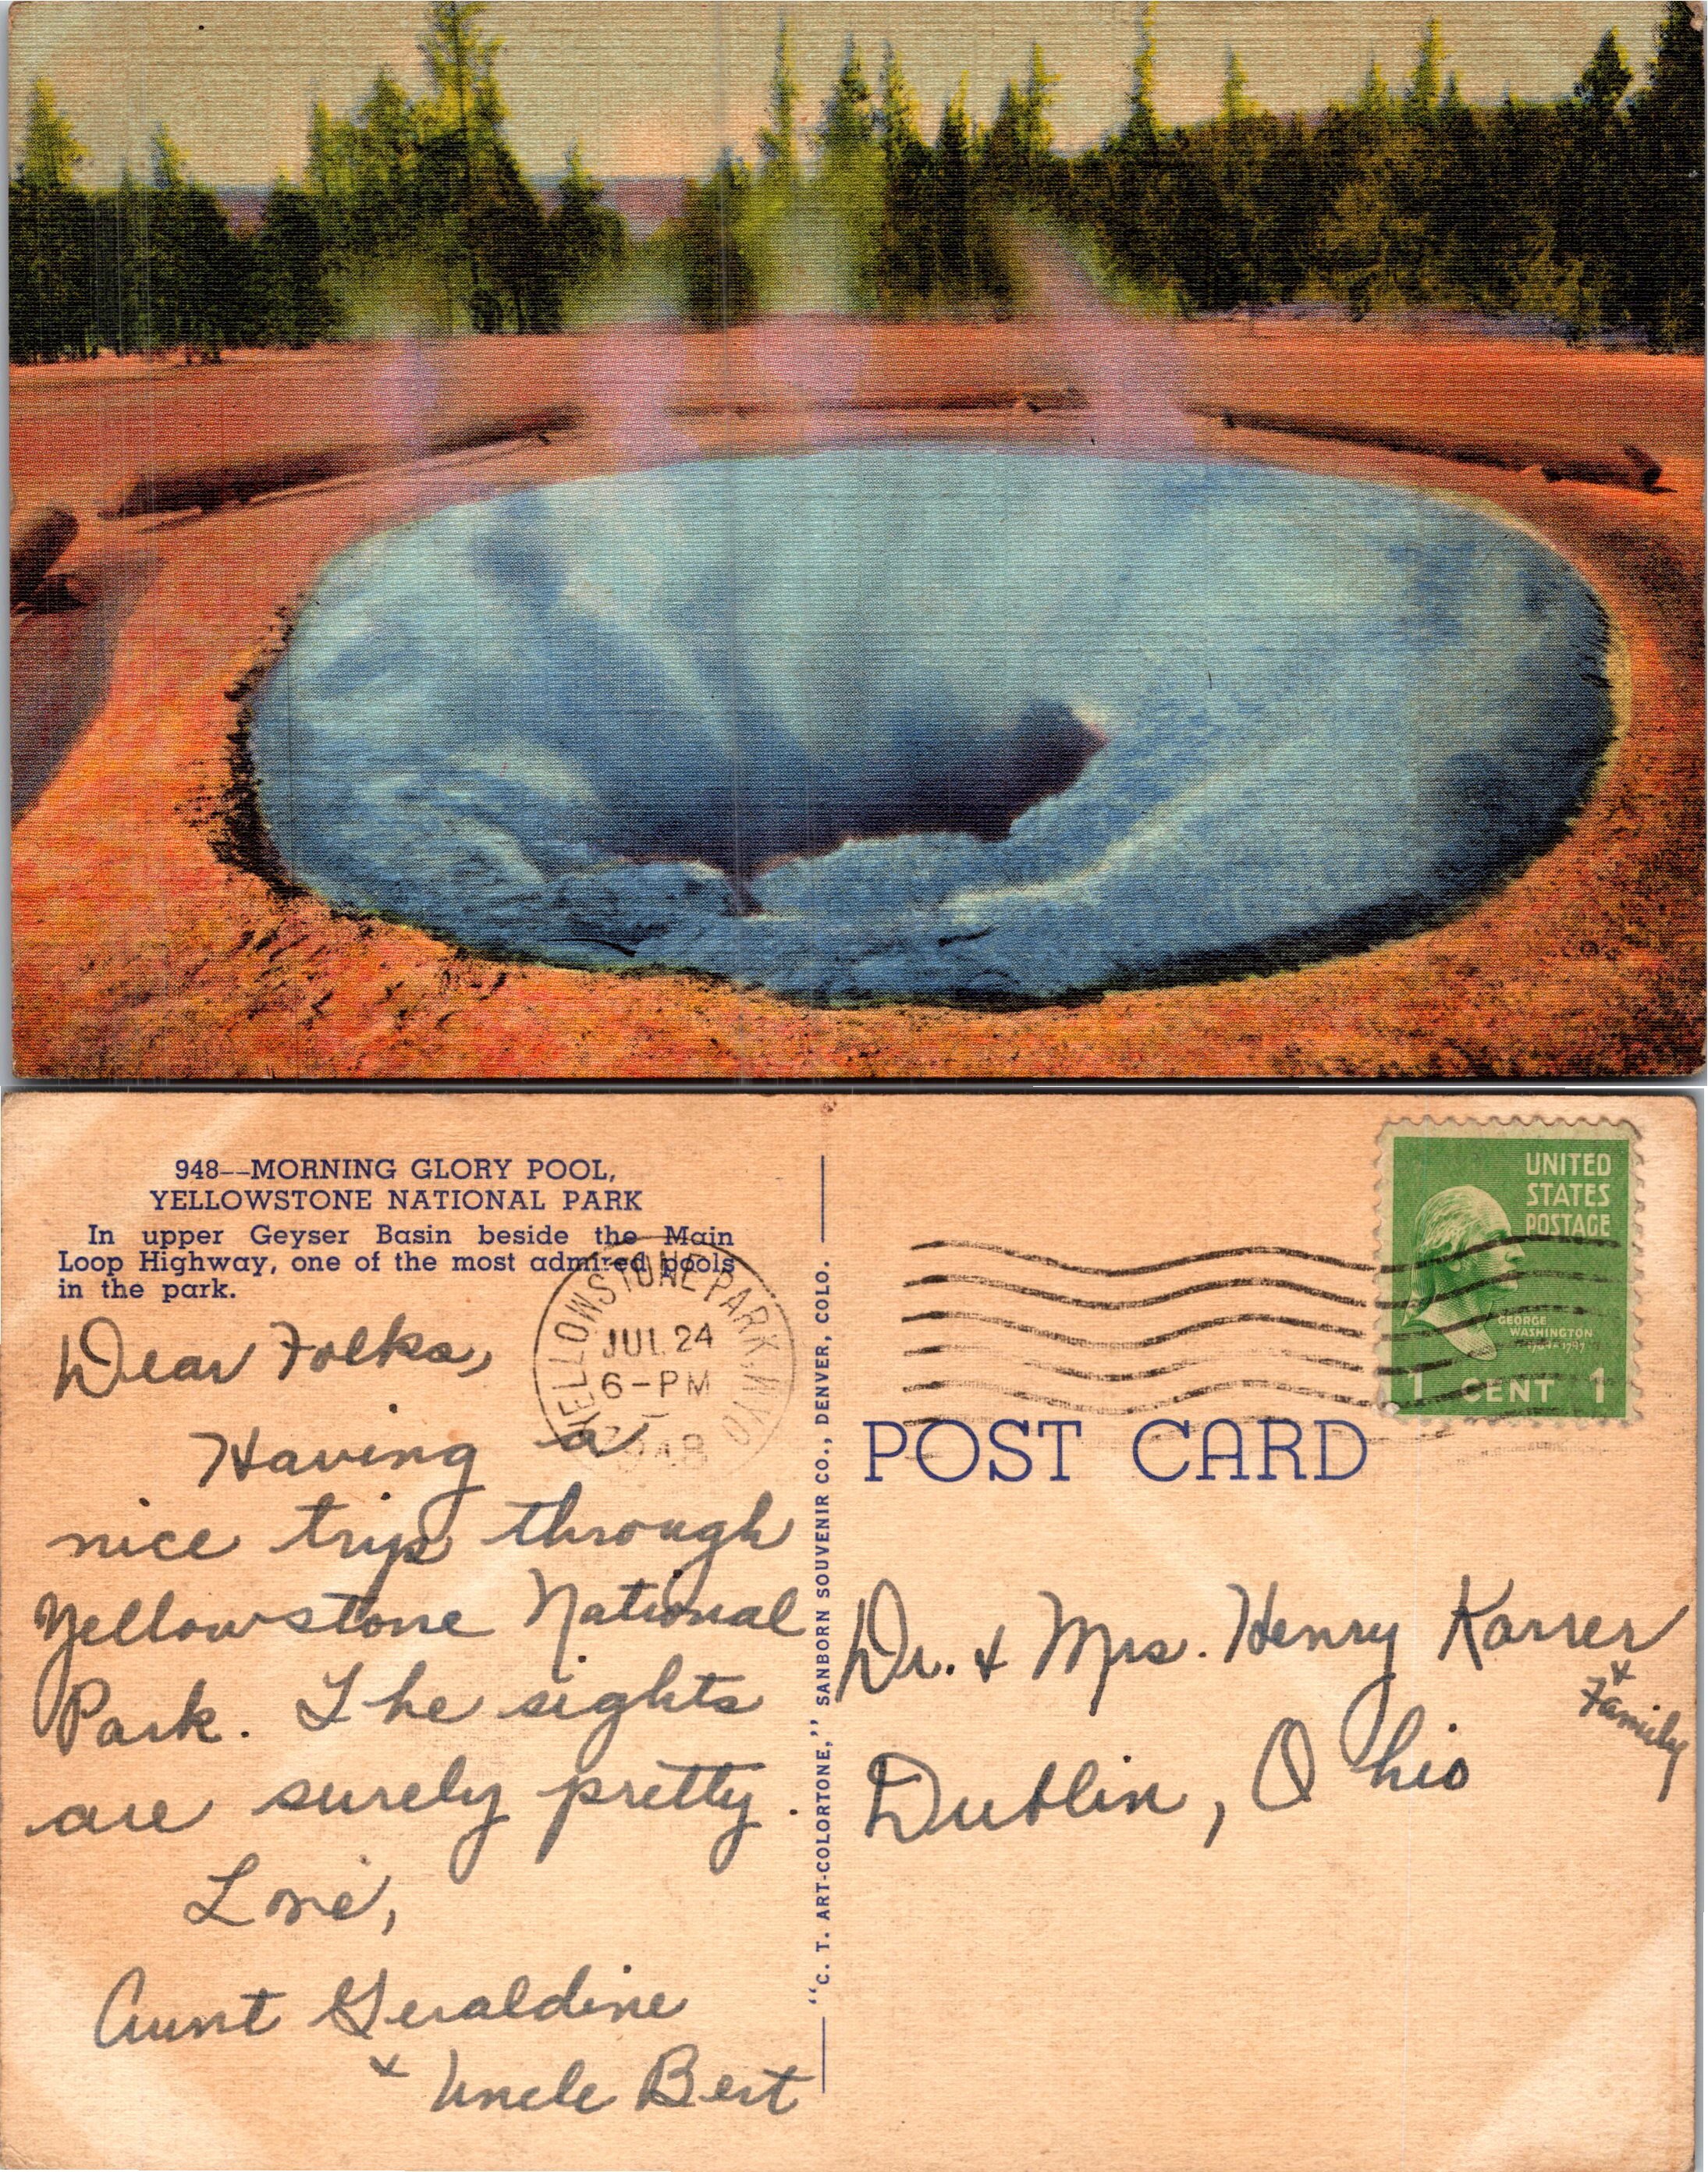 948--MORNING GLORY POOL,
YELLOWSTONE NATIONAL PARK
In upper Geyser Basin beside the Main
Loop Highway, one of the most admired pools
in the park.
YELLOWSTONE PARK, WYO
JUL 24
6-PM
1948
Dear Folks,
Having a
nice trip through
Yellowstone National
Park. The sights
are surely pretty.
Love,
Aunt Geraldine
+ Uncle Bert
"C. T. ART-COLORTONE," SANBORN SOUVENIR CO., DENVER, COLO.
UNITED
STATES
POSTAGE
GEORGE
WASHINGTON
1 CENT 1
POST CARD
Dr. + Mrs. Henry Karrer
+
Family
Dublin, Ohio